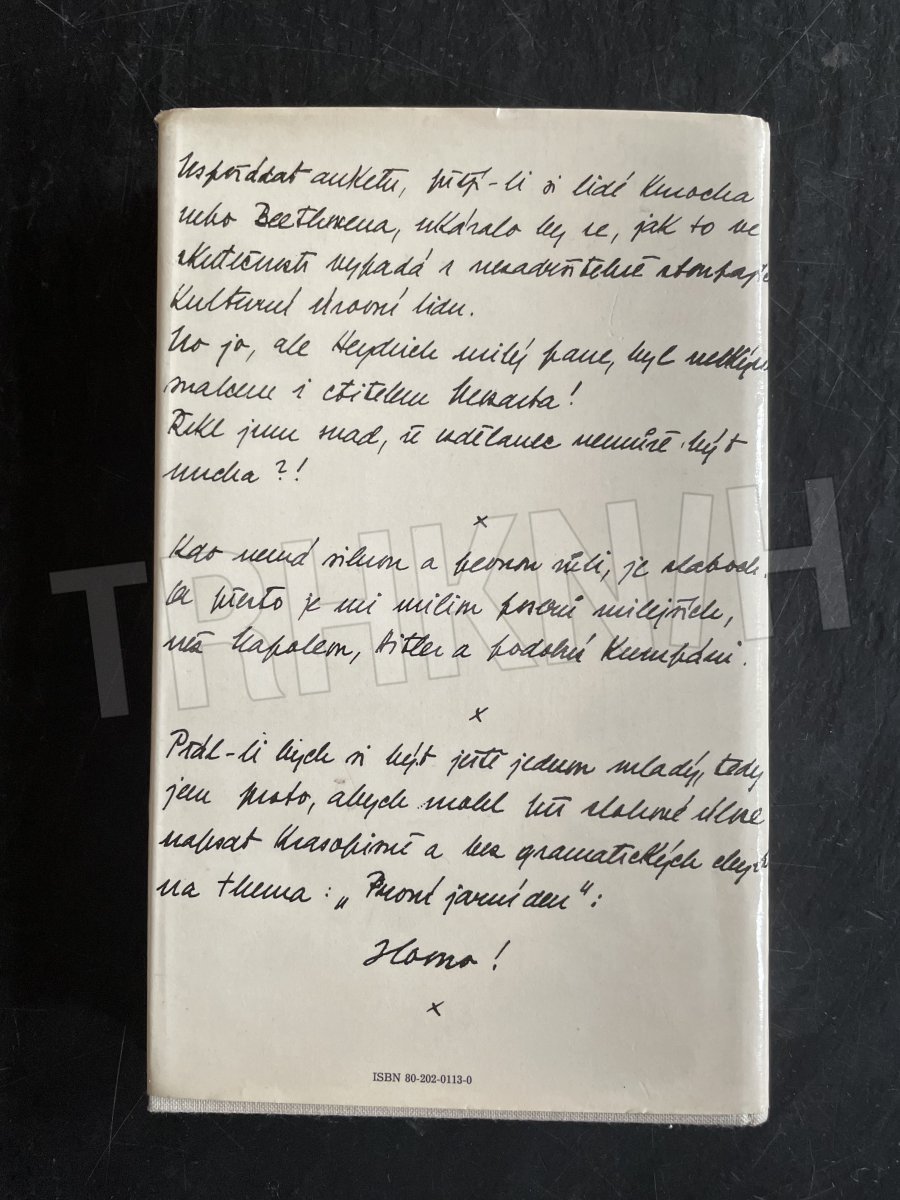 Uspořádat anketu, přějí-li si lidé Kmocha
nebo Beethovena, ukázalo by se, jak to ve
skutečnosti vypadá s nezadržitelně stoupající
kulturní úrovní lidu.
No jo, ale Heydrich milý pane, byl velkým
znalcem i ctitelem Mozarta!
Řekl jsem snad, že vzdělanec nemůže být
mucha?!
x
Kdo nemá silnou a pevnou vůli, je slaboch.
A přesto je mi milion poserů milejších,
než Napoleon, Hitler a podobní kumpáni.
x
Přál-li bych si být ještě jednou mladý, tedy
jen proto, abych mohl při slohové úloze
napsat krasopisně a bez gramatických chyb
na thema: „První jarní den“:
Hovno!
x
ISBN 80-202-0113-0
TRHKNIH